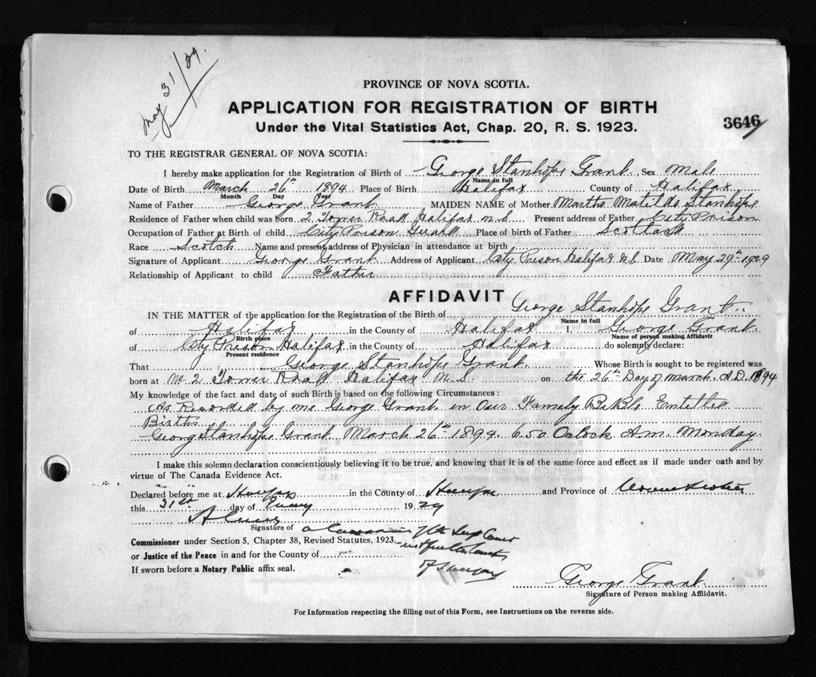 May 31/29.
PROVINCE OF NOVA SCOTIA.
APPLICATION FOR REGISTRATION OF BIRTH
Under the Vital Statistics Act, Chap. 20, R. S. 1923.
3646
TO THE REGISTRAR GENERAL OF NOVA SCOTIA:
I hereby make application for the Registration of Birth of George Stanhope Grant Sex Male
Name in full
Date of Birth March 26th 1894 Place of Birth Halifax County of Halifax
Month Day Year
Name of Father George Grant MAIDEN NAME of Mother Martha Matilda Stanhope
Residence of Father when child was born 2 Tower Road Halifax N.S. Present address of Father City Prison
Occupation of Father at Birth of child City Prison Guard Place of birth of Father Scotland
Race Scotch Name and present address of Physician in attendance at birth
Signature of Applicant George Grant Address of Applicant City Prison Halifax N.S Date May 29th 1929
Relationship of Applicant to child Father
AFFIDAVIT
IN THE MATTER of the application for the Registration of Birth of George Stanhope Grant.
Name in full
of Halifax in the County of Halifax I, George Grant.
Birth place Name of person making Affidavit
of City Prison Halifax in the County of Halifax do solemnly declare:
Present residence
That George Stanhope Grant. Whose Birth is sought to be registered was
born at No 2 Tower Road Halifax N.S. on the 26th Day of March A.D. 1894
My knowledge of the fact and date of such Birth is based on the following Circumstances:
As Recorded by me George Grant in Our Family Bible Entitled
Births
George Stanhope Grant March 26th 1894. 6.50 Oclock A.m. Monday.
I make this solemn declaration conscientiously believing it to be true, and knowing that it is of the same force and effect as if made under oath and by
virtue of The Canada Evidence Act.
Declared before me at Halifax in the County of Halifax and Province of Nova Scotia
this 31st day of May 1929
Signature of
Commissioner under Section 5, Chapter 38, Revised Statutes, 1923.
or Justice of the Peace in and for the County of
If sworn before a Notary Public affix seal.
George Grant.
Signature of Person making Affidavit.
For Information respecting the filling out of this Form, see Instructions on the reverse side.